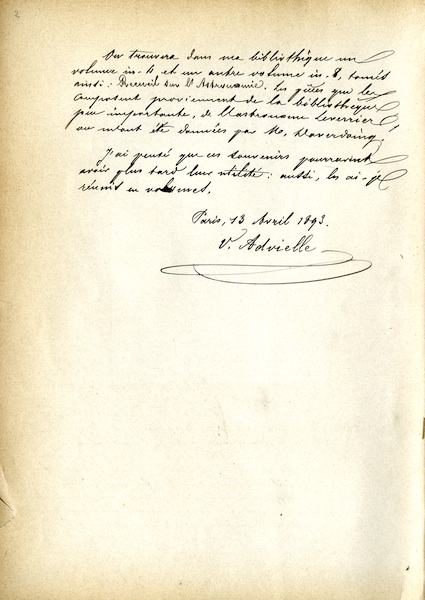 2
On trouvera dans ma bibliothèque un
volume in-4 et un autre volume in-8, 
ainsi: Recueil sur l'Astronomie. Les pièces qui le
composent proviennent de la bibliothèque,
peu importante, de l'astronome Leverrier
ou m'ont été données par M.
J'ai pensé que ces souvenirs pourraient
avoir plus tard leur utilité: aussi, les ai-je
réunis en volumes.
Paris, 13 Avril 1893.
V. Advielle